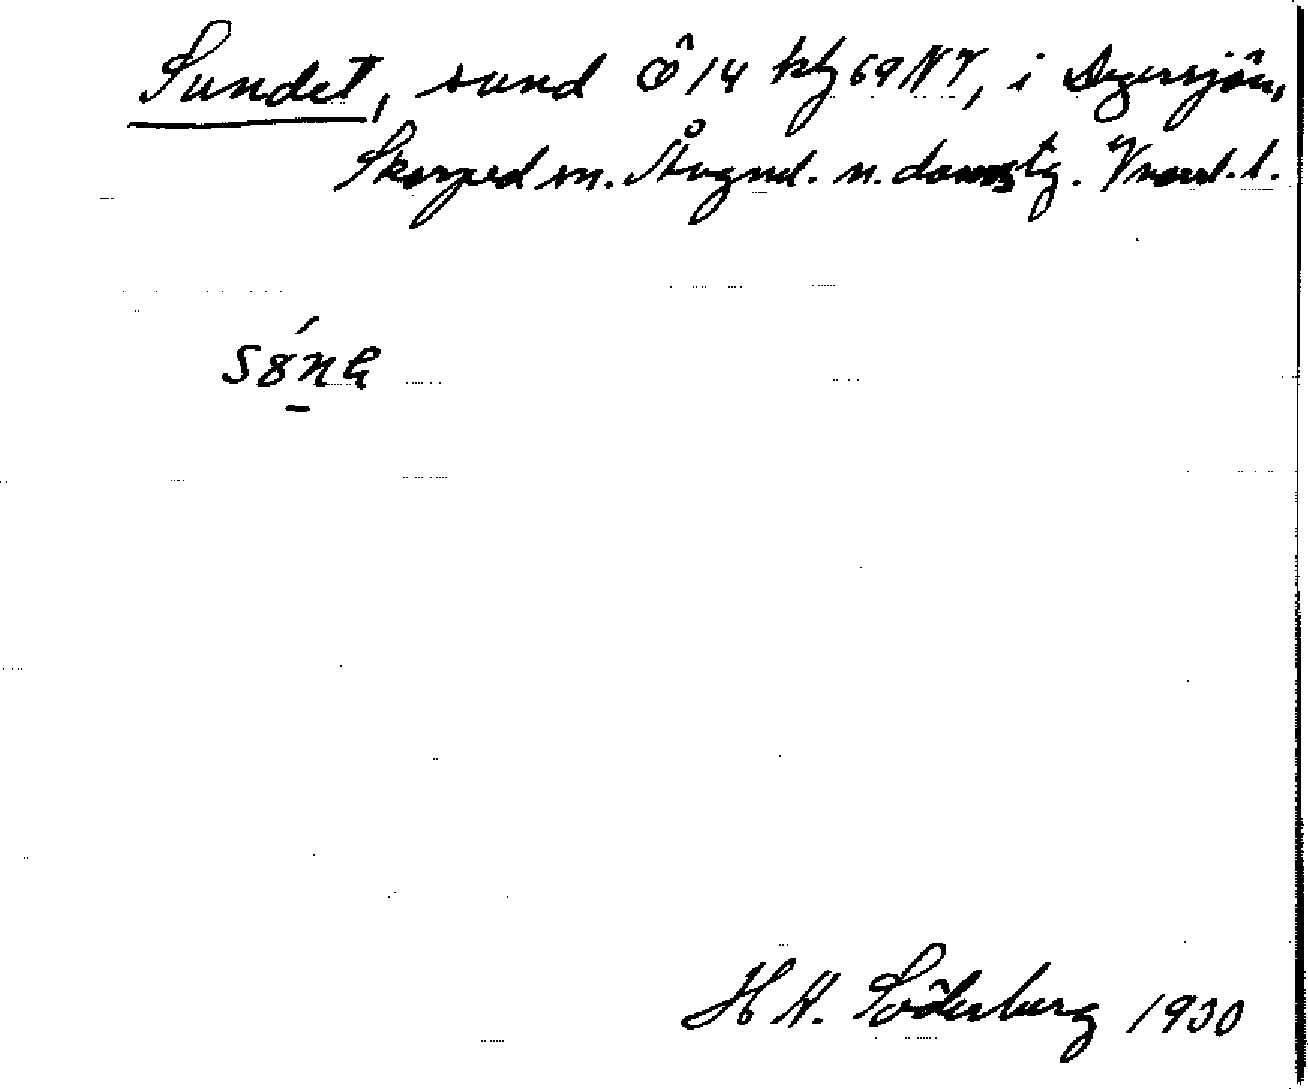 Sundet, sund Ö 14 kbg 69 NV, i Degersjön,
Skorped sn. Ångml. n. domstg. Vnorrl. l.
H H. Söderberg 1930